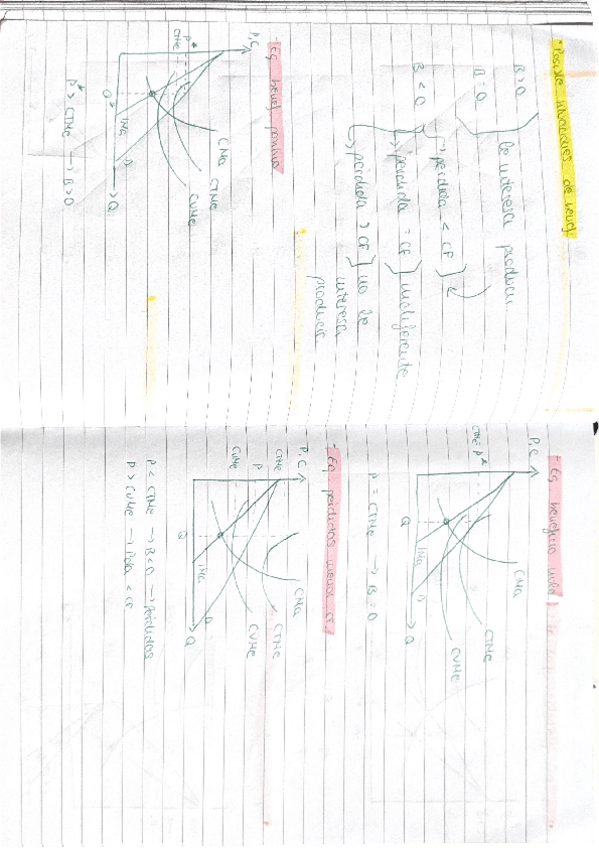 · Posible situaciones de benef
B>0
B=0
le interesa producir
B<0
→ perdida < CF
→ perdida = CF
indiferente
→ perdida > CF
no le
interesa
producir
- Eq benef positivo
P,C
P*
CTMe
CMa
CTMe
CVMe
Q*
IMa
D
Q
P* > CTMe → B>0
- Eq beneficio nulo
P,C
CTMe=P*
CMa
CTMe
CVMe
Q
IMa
D
Q
P = CTMe → B=0
- Eq perdidas menor CF
P,C
CTMe
P
CVMe
CMa
CTMe
CVMe
Q
IMa
D
Q
P < CTMe → B<0 → perdidas
P > CVMe → Pdida < CF